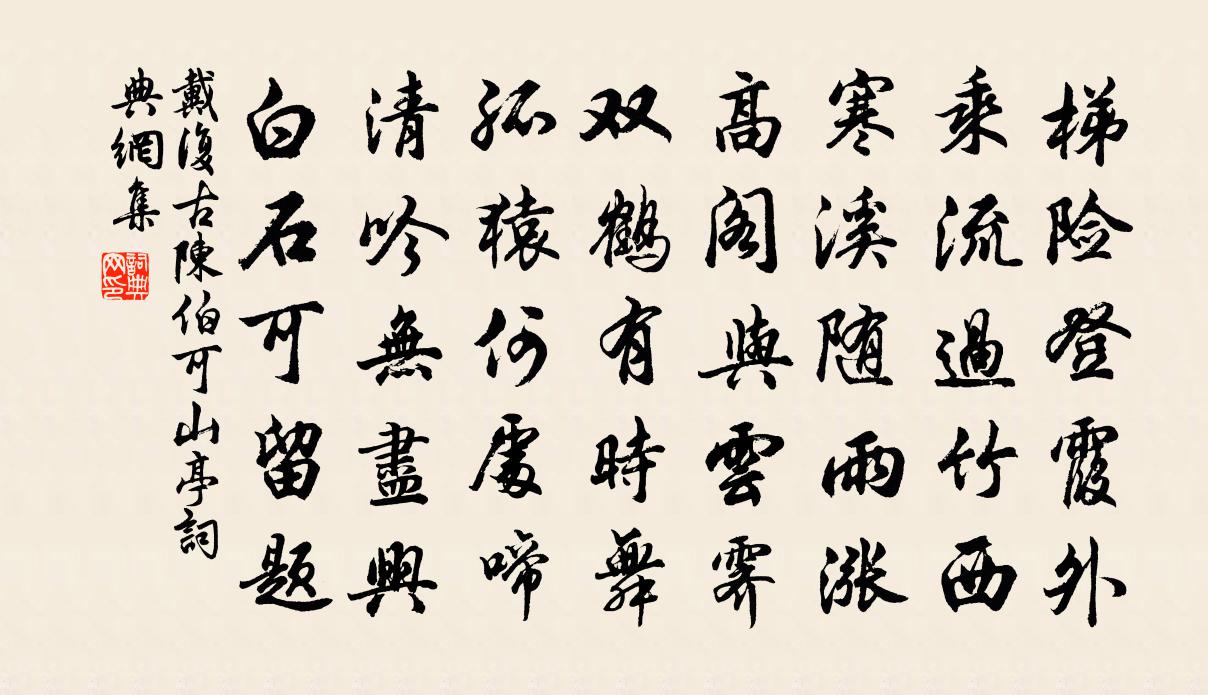 梯险登霞外
乘流過竹西
寒溪随雨漲
高阁與雲霽
双鶴有時舞
孤猿何處啼
清吟無盡興
白石可留题
戴復古陳伯可山亭詞
典網集
詞典网印